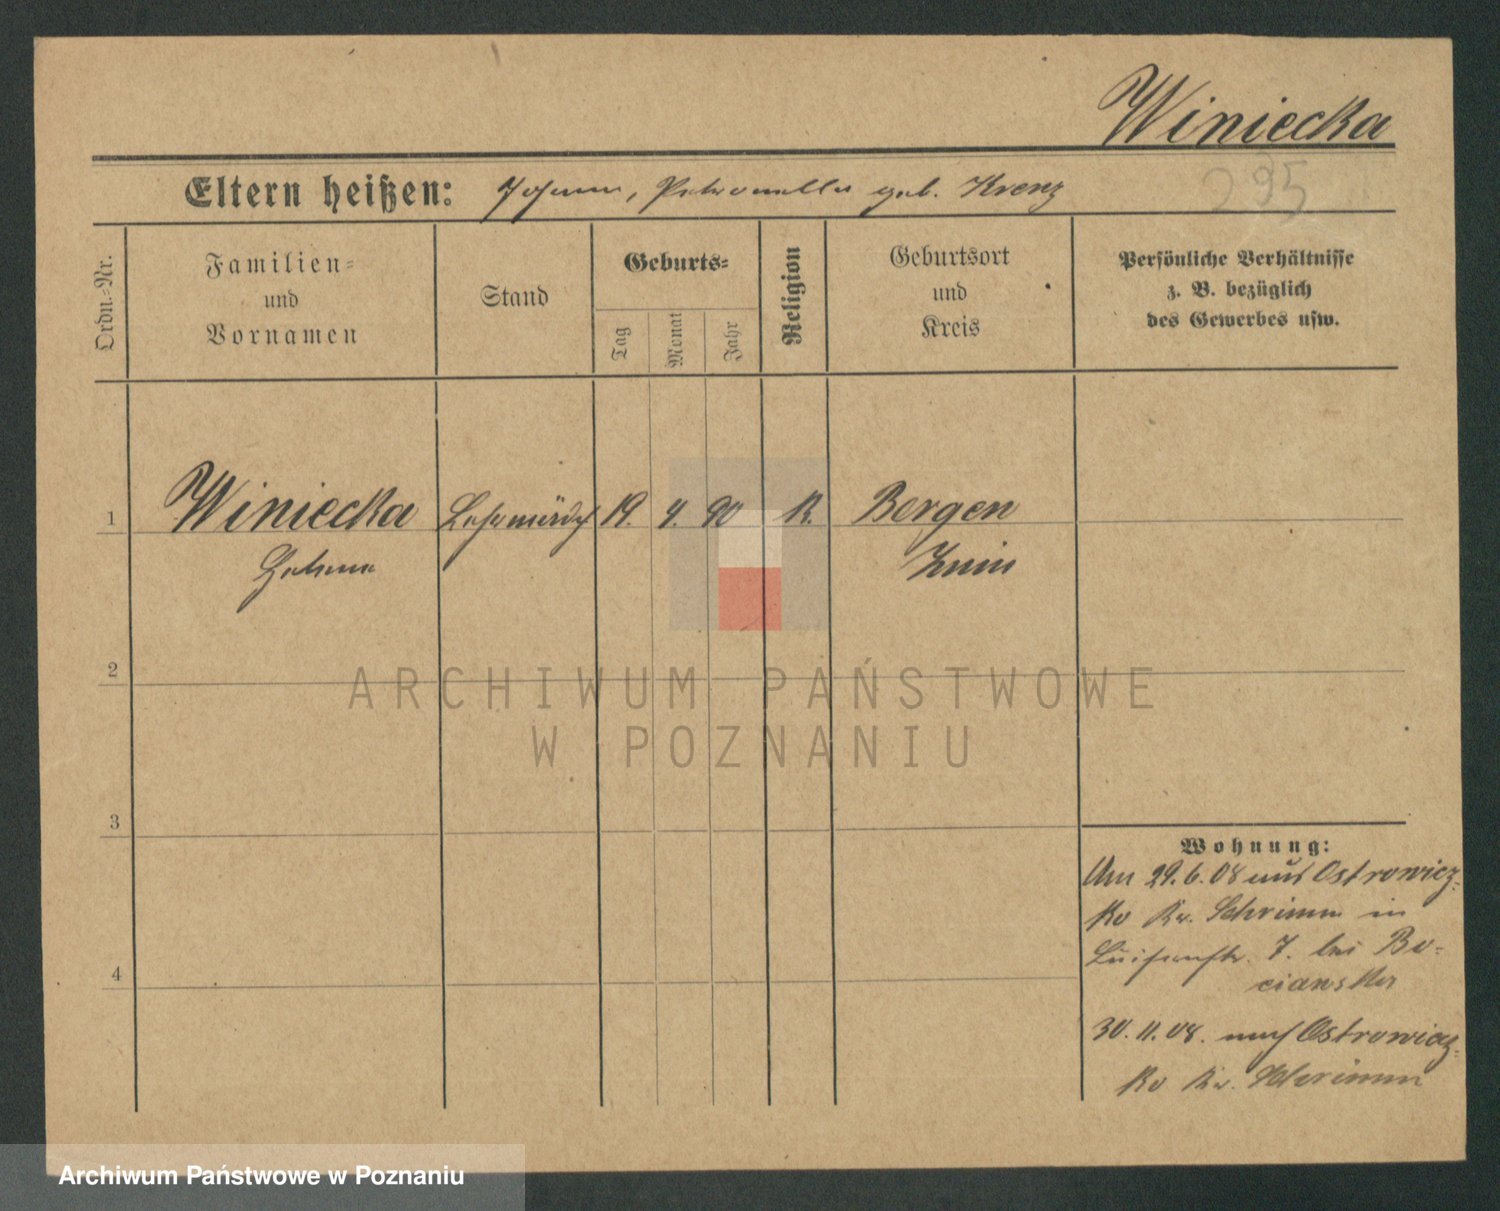 Winiecka
295
Eltern heißen: Johann, Petronella geb. Krenz
Ordn.-Nr.
Familien-
und
Vornamen
Stand
Geburts-
Tag
Monat
Jahr
Religion
Geburtsort
und
Kreis
Persönliche Verhältnisse
z. B. bezüglich
des Gewerbes usw.
1 Winiecka 19. 4. 90 K. Bergen
Znin
2
3
4
ARCHIWUM PAŃSTWOWE
W POZNANIU
Wohnung:
Am 29.6.08 aus Ostrowicz-
ko Kr. Schrimm in
Luisenstr. 7. bei Bo-
cianska
30.11.08. nach Ostrowicz-
ko Kr. Schrimm
Archiwum Państwowe w Poznaniu